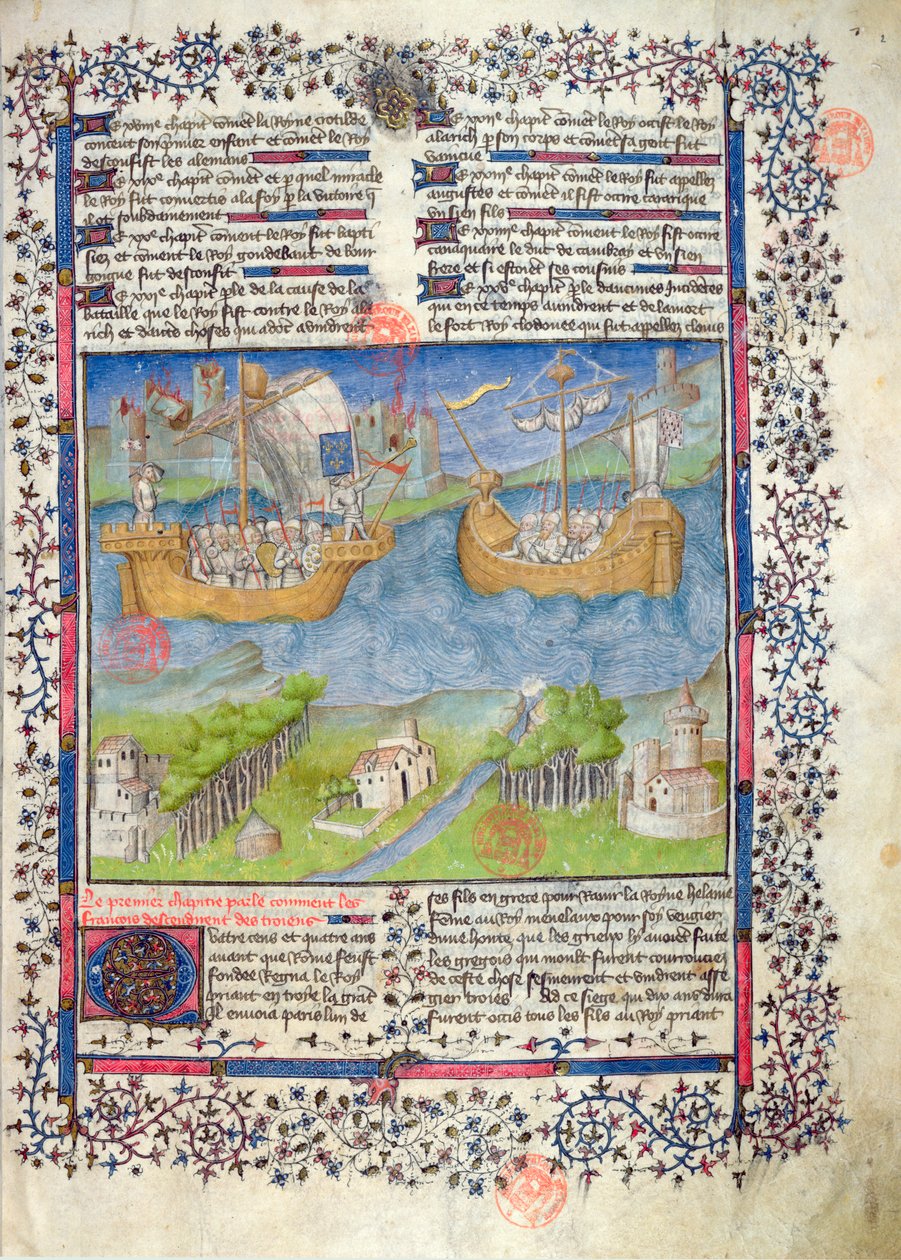 Le xviiie chapitre coment la Royne crotilde
conceut son pmier enfant et coment le Roy
desconfist les alemans
Le xixe chapitre coment et p quel miracle
le Roy fut convertis a la foy p la victoire q
il ot soubdainement
Le xxe chapitre coment le Roy fut bapti
siez et coment le Roy gondebaut de bour
goigne fut desconfit
Le xxie chapitre ple de la cause de la
bataille que le Roy fist contre le Roy ala
rich et dautres choses qui adoc advindrent
Le xxiie chapitre coment le Roy occist le Roy
alarich p son corps et coment sa gent fut
vaincue
Le xxiiie chapitre coment le Roy fut appellez
augustes et coment il fist ocirre cararique
un sien filz
Le xxiiiie chapitre coment le Roy fist ocirre
ranaquaire le duc de cambray et un sien
frere et si estoient ses cousins
Le xxve chapitre ple daucunes incidetes
qui en ce temps avindrent et de la mort
le fort Roy clodovee qui fut appellez clovis
Le premier chapitre parle comment les
francois descendirent des troiens
Quatre cens et quatre ans
avant que Rome feust
fondee Regna le Roy
priant en troye la grat
Il envoia paris lun de
ses filz en grece pour Ravir la Royne helaine
Feme au Roy menelaux pour soy vengier
dune honte que les grieux ly avoiet faite
les gregois qui moult furent courrouciez
de ceste chose sesmeurent et vindrent asse
gier troies Ad ce siege qui dix ans dura
furent occis tous les filz au Roy priant
2